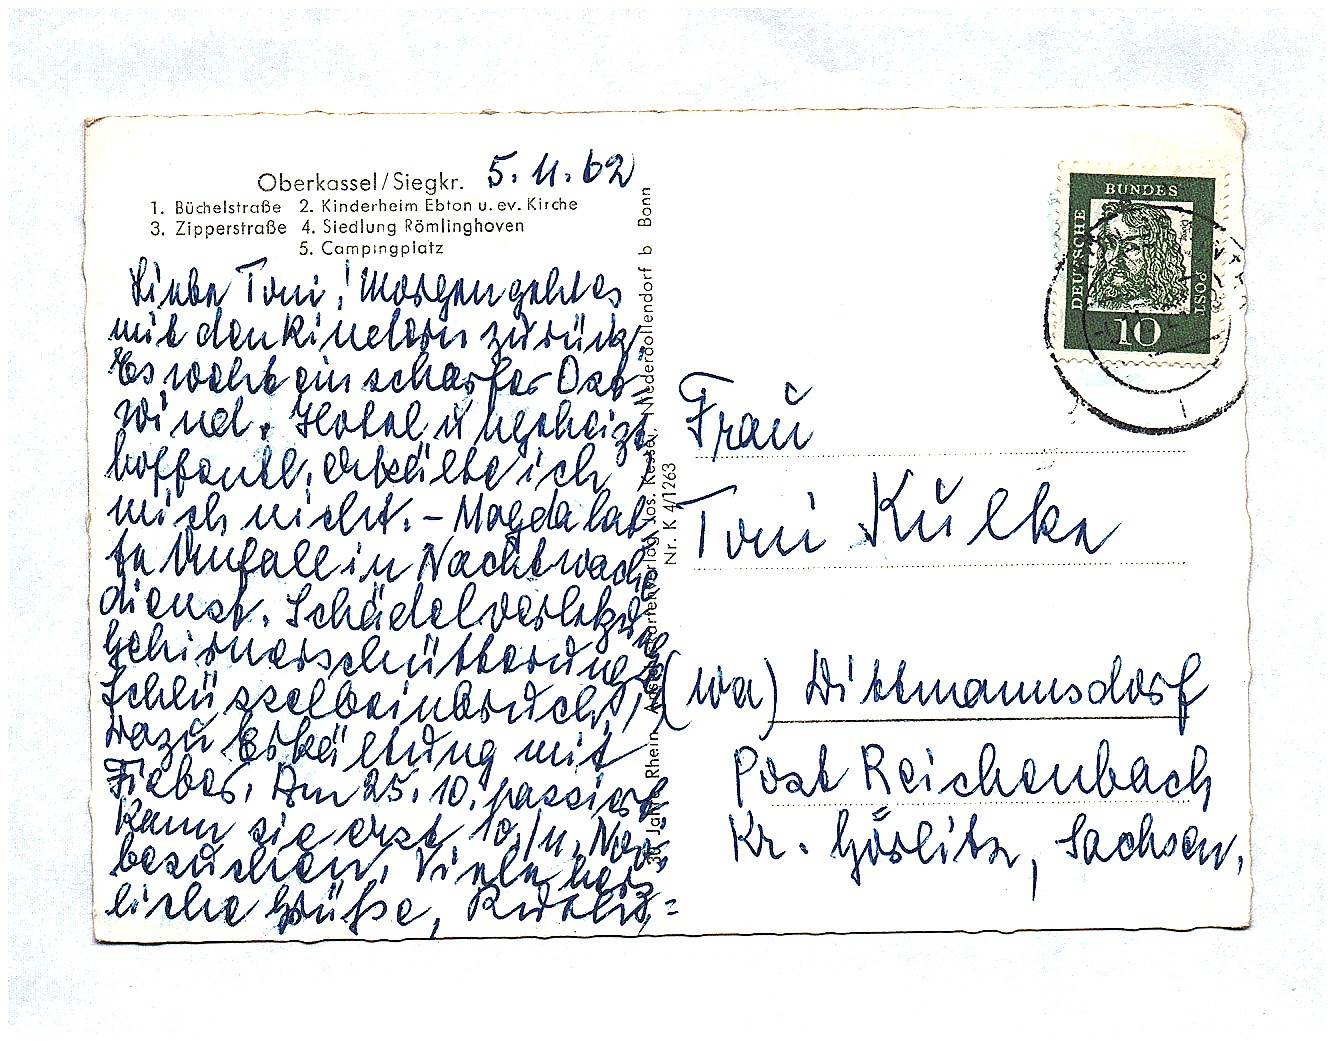 Oberkassel/Siegkr. 5.11.62
1. Büchelstraße 2. Kinderheim Ebton u. ev. Kirche
3. Zipperstraße 4. Siedlung Römlinghoven
5. Campingplatz
Liebe Toni! Morgen geht es
mit den Kindern zurück.
Es weht ein scharfer Ost-
wind. Hotel ungeheizt
hoffentl. erkälte ich
mich nicht. – Magda hat
te Unfall in Nachtwache
dienst. Schädelverletzung
Gehirnerschütterung
Schlüsselbeinbruch,
Dazu Erkältung mit
Fieber. Am 25.10. passiert
Kann sie erst 10./11. Nov.
besuchen. Viele herz-
liche Grüße,
30 Jahre Rhein. Ansichtskartenverlag Jos. Kessel, Niederdollendorf b Bonn
Nr. K 4/1263
DEUTSCHE BUNDES POST
10
Frau
Toni Kulka
(10a) Dittmannsdorf
Post Reichenbach
Kr. Görlitz, Sachsen.